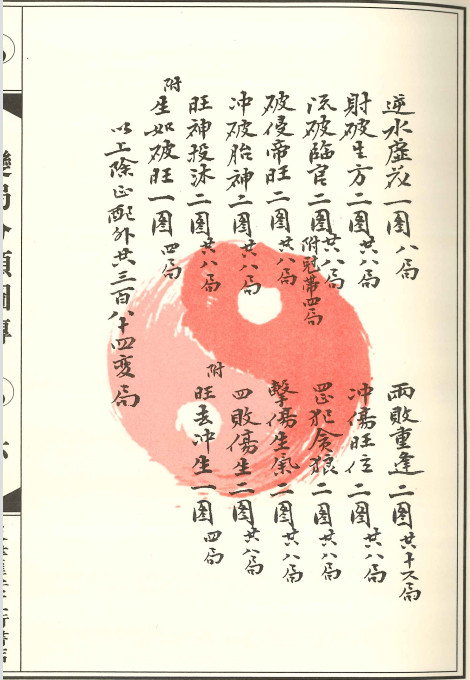 逆水虛花一图八局
射破生方二图共八局
流破临官二图共八局
附冠帯四局
破侵帝旺二图共八局
冲破胎神二图共八局
旺神投沐二图共八局
附生如破旺一图四局
两敗重逢二图共十六局
冲傷旺位二图共八局
罡犯貪狼二图共八局
擊傷生氣二图共八局
四敗傷生二图共八局
附旺去冲生一图四局
以上除正配外共三百八十四変局